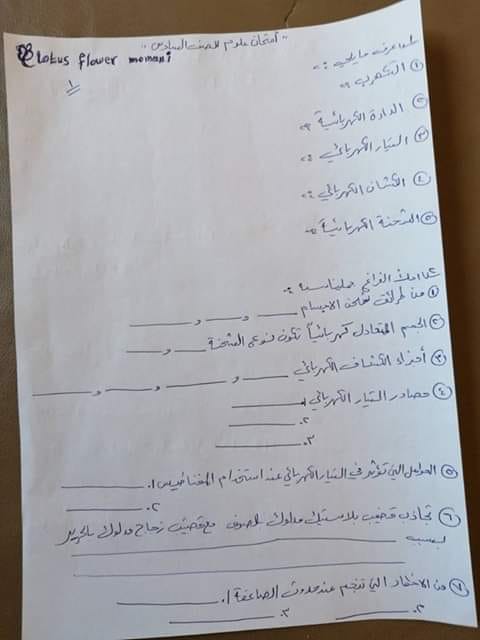 "امتحان علوم للصف السادس"
Lotus flower momani
١
س١: عرف ما يلي :-
① التكهرب :-
② الدارة الكهربائية :-
③ التيار الكهربائي :-
④ الكشاف الكهربائي :-
⑤ الشحنة الكهربائية :-
س٢: املأ الفراغ بما يناسبه :-
① من طرائق شحن الاجسام ____ و ____ و ____
② الجسم المتعادل كهربائياً تكون فيه نوعي الشحنة ____ و ____
③ أجزاء الكشاف الكهربائي ____ و ____ و ____ و ____
④ مصادر التيار الكهربائي ١. ____
٢. ____
٣. ____
⑤ العوامل التي تؤثر في التيار الكهربائي عند استخدام المغناطيس ١. ____
٢. ____
⑥ تجاذب قضيب بلاستيك مدلوك بالصوف مع قضيب زجاج مدلوك بالحرير
بسبب ____
⑦ من الاخطار التي تنجم عند حدوث الصاعقة ١. ____
٢. ____ ٣. ____